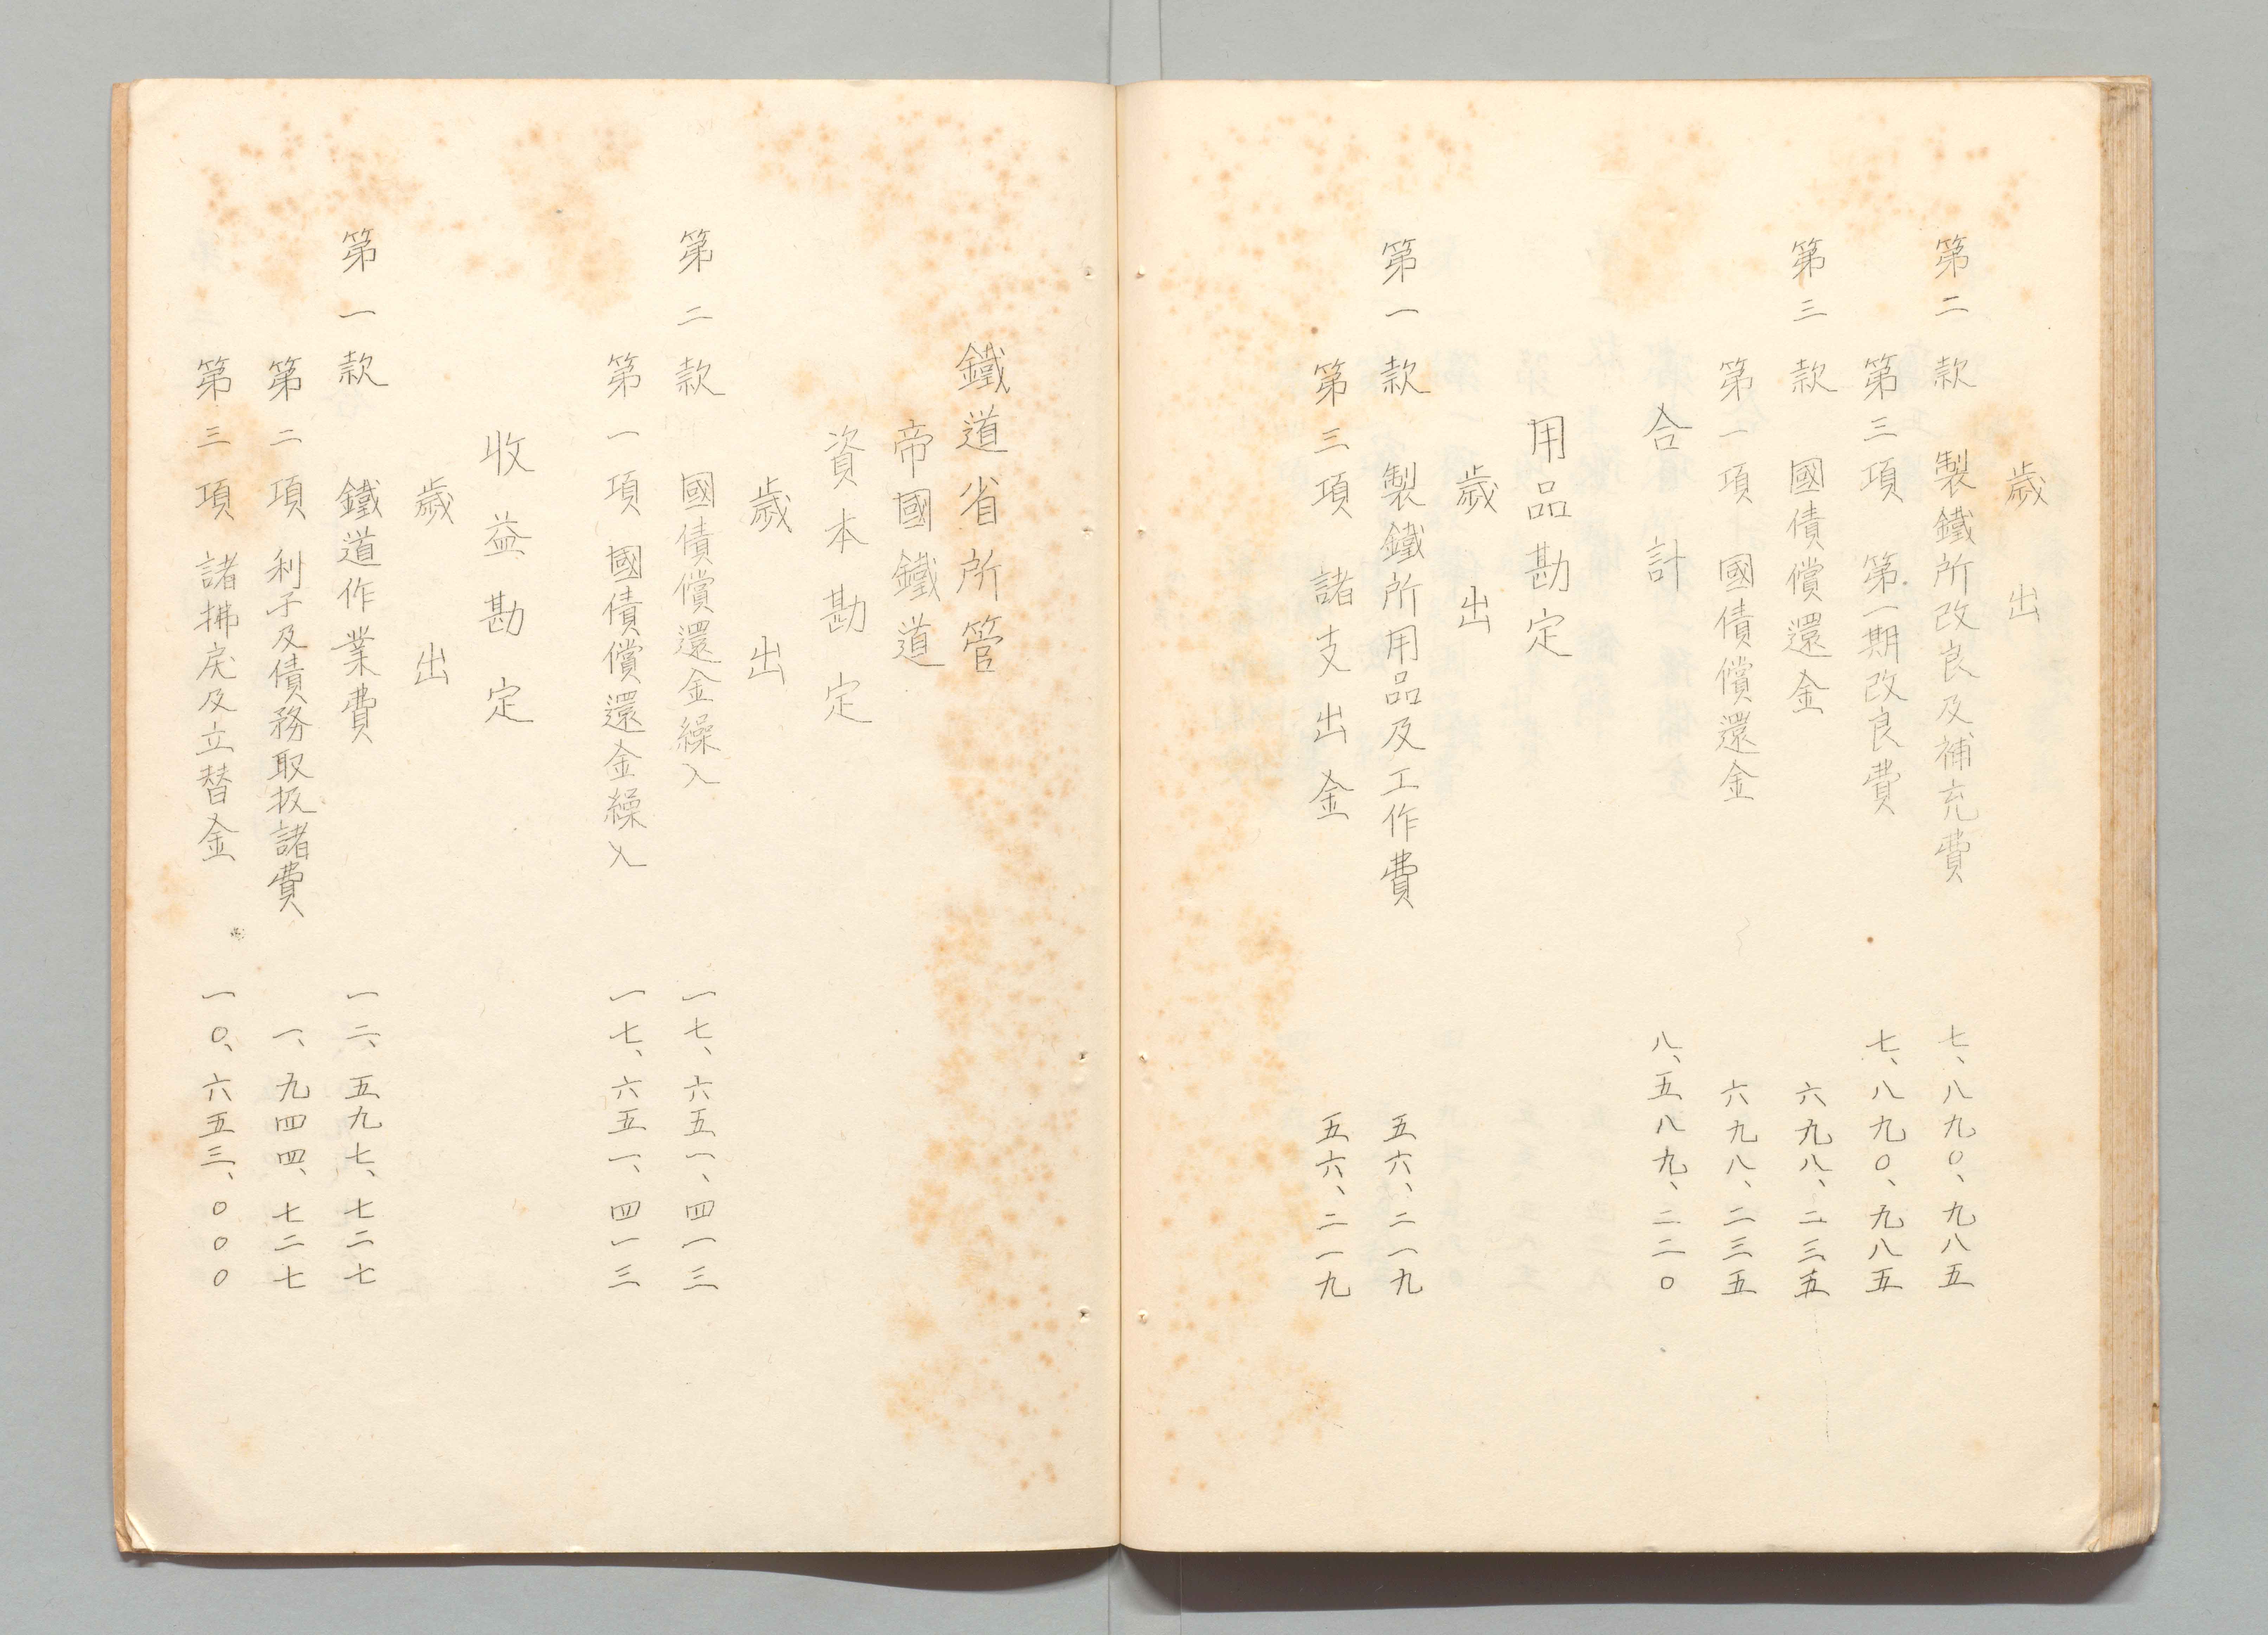 歲出
第二款 製鐵所改良及補充費 七、八九〇、九八五
第三項 第一期改良費 七、八九〇、九八五
第三款 國債償還金 六九八、二三五
第一項 國債償還金 六九八、二三五
合計 八、五八九、二二〇
用品勘定
歲出
第一款 製鐵所用品及工作費 五六、二一九
第三項 諸支出金 五六、二一九
鐵道省所管
帝國鐵道
資本勘定
歲出
第二款 國債償還金繰入 一七、六五一、四一三
第一項 國債償還金繰入 一七、六五一、四一三
收益勘定
歲出
第一款 鐵道作業費 一二、五九七、七二七
第二項 利子及債務取扱諸費 一、九四四、七二七
第三項 諸拂戾及立替金 一〇、六五三、〇〇〇